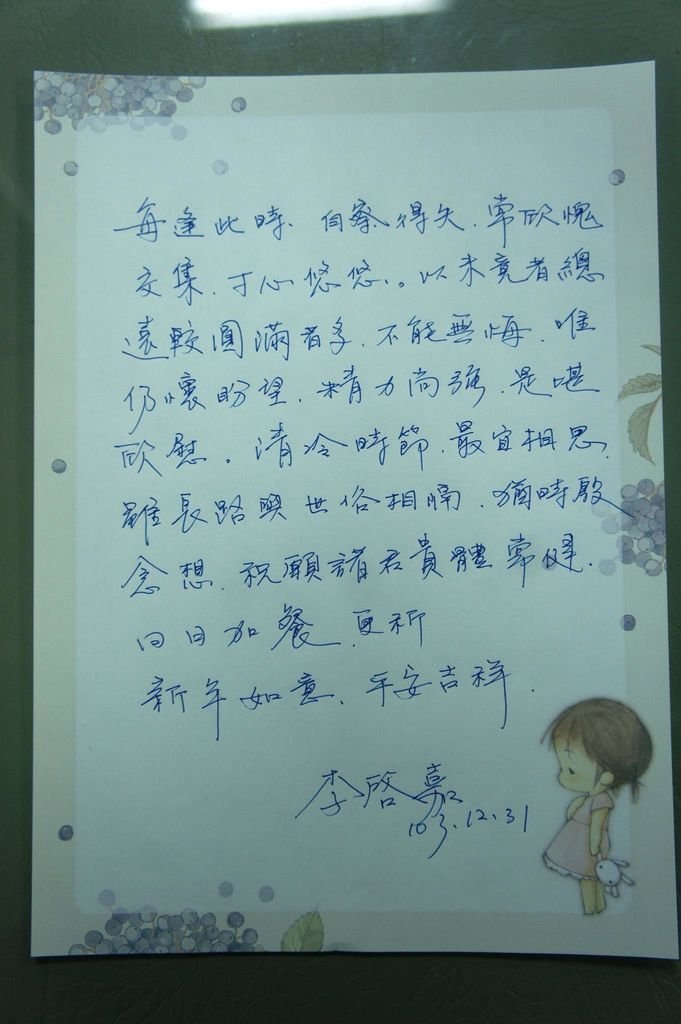 每逢此時、自察得失、常欣愧
交集、寸心悠悠。以未竟者總
遠較圓滿者多、不能無悔、唯
仍懷盼望、精力尚強、是堪
欣慰。清冷時節、最宜相思、
雖長路與世俗相隔、猶時殷
念想、祝願諸君貴體常健、
日日加餐、更祈
新年如意、平安吉祥、
李啓嘉
103.12.31